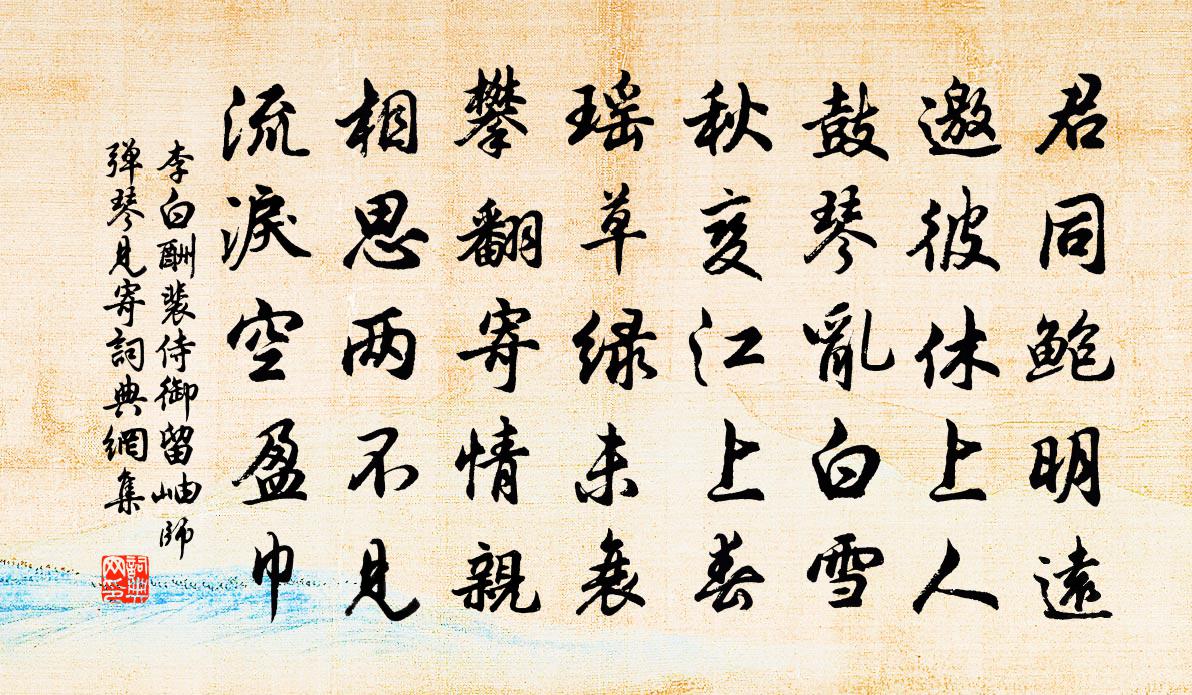 君同鲍明遠
邀彼休上人
鼓琴亂白雪
秋变江上春
瑶草绿未衰
攀翻寄情親
相思两不見
流淚空盈巾
李白酬裴侍御留岫師
弹琴見寄詞典網集